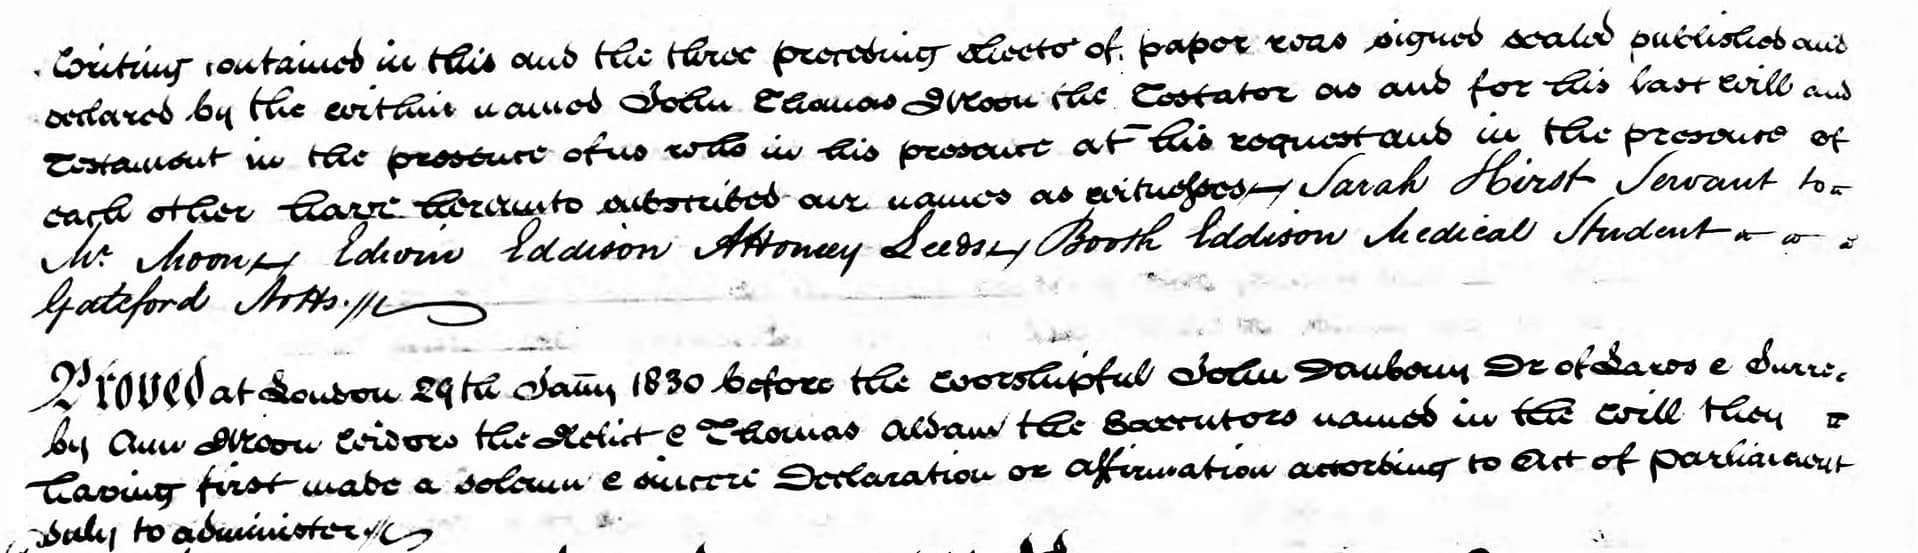 Writing contained in this and the three preceding sheets of paper was signed sealed published and
declared by the within named John Thomas Moon the Testator as and for his last Will and
Testament in the presence of us who in his presence at his request and in the presence of
each other have hereunto subscribed our names as witnesses Sarah Hirst Servant to
Mr. Moon Edwin Eddison Attorney Leeds Booth Eddison Medical Student
Gateford Notts.
Proved at London 29th Jany 1830 before the Worshipful John Daubeny Dr of Laws & Surre.
by Ann Moon Widow the Relict & Thomas Aldam the Executors named in the Will they
having first made a solemn & sincere Declaration or Affirmation according to Act of Parliament
duly to administer.